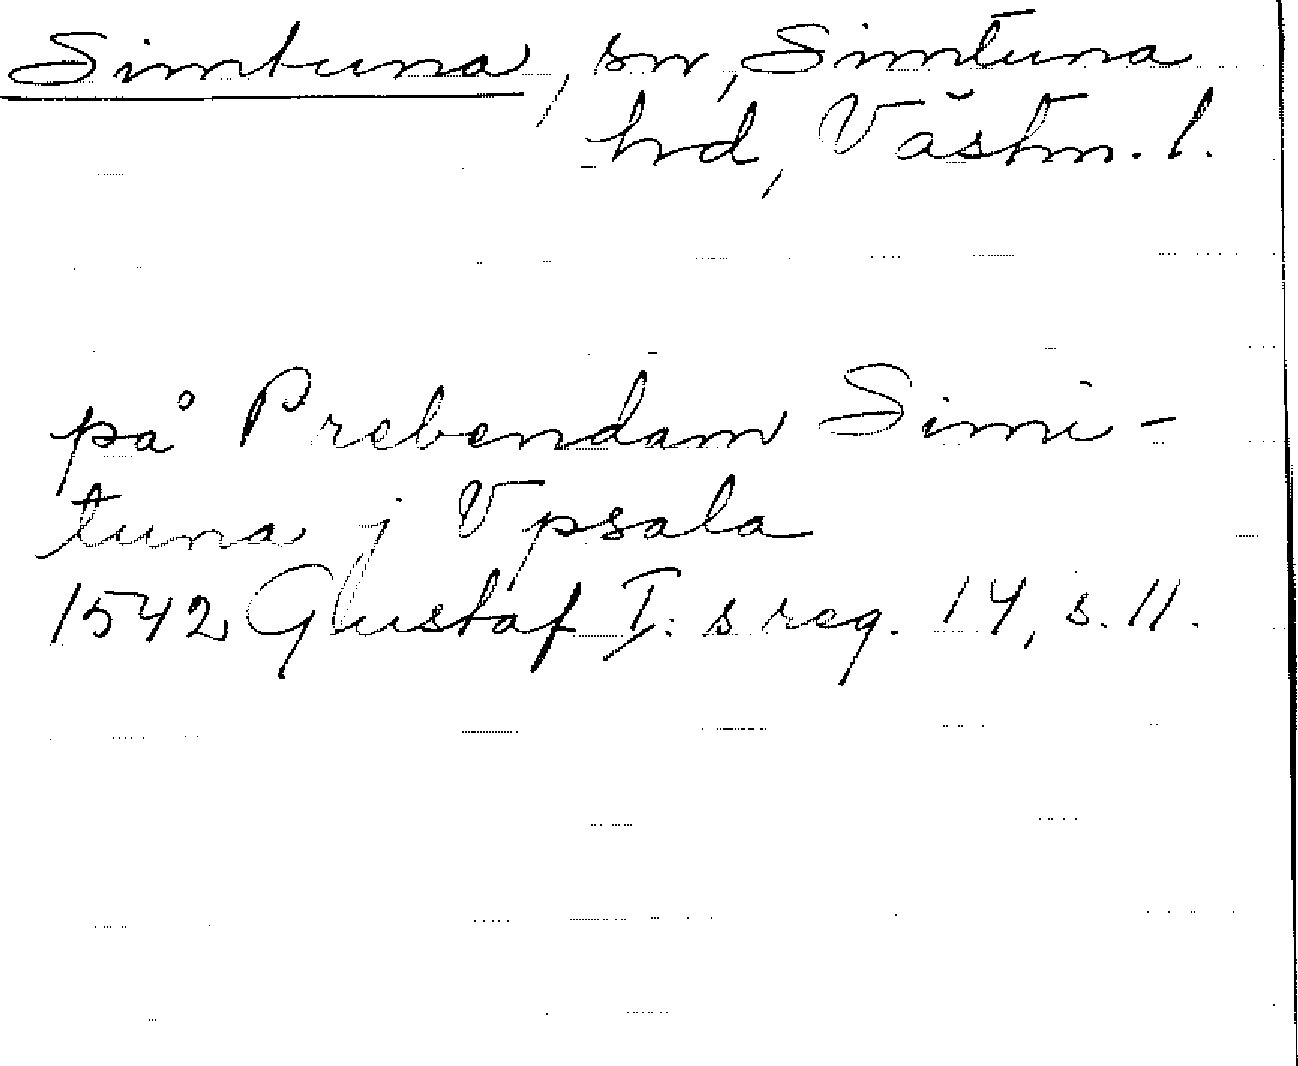 Simtuna, sn, Simtuna
hd, Västm. l.
på Prebendam Simi-
tuna j Vpsala
1542 Gustaf I:s reg. 14, s. 11.